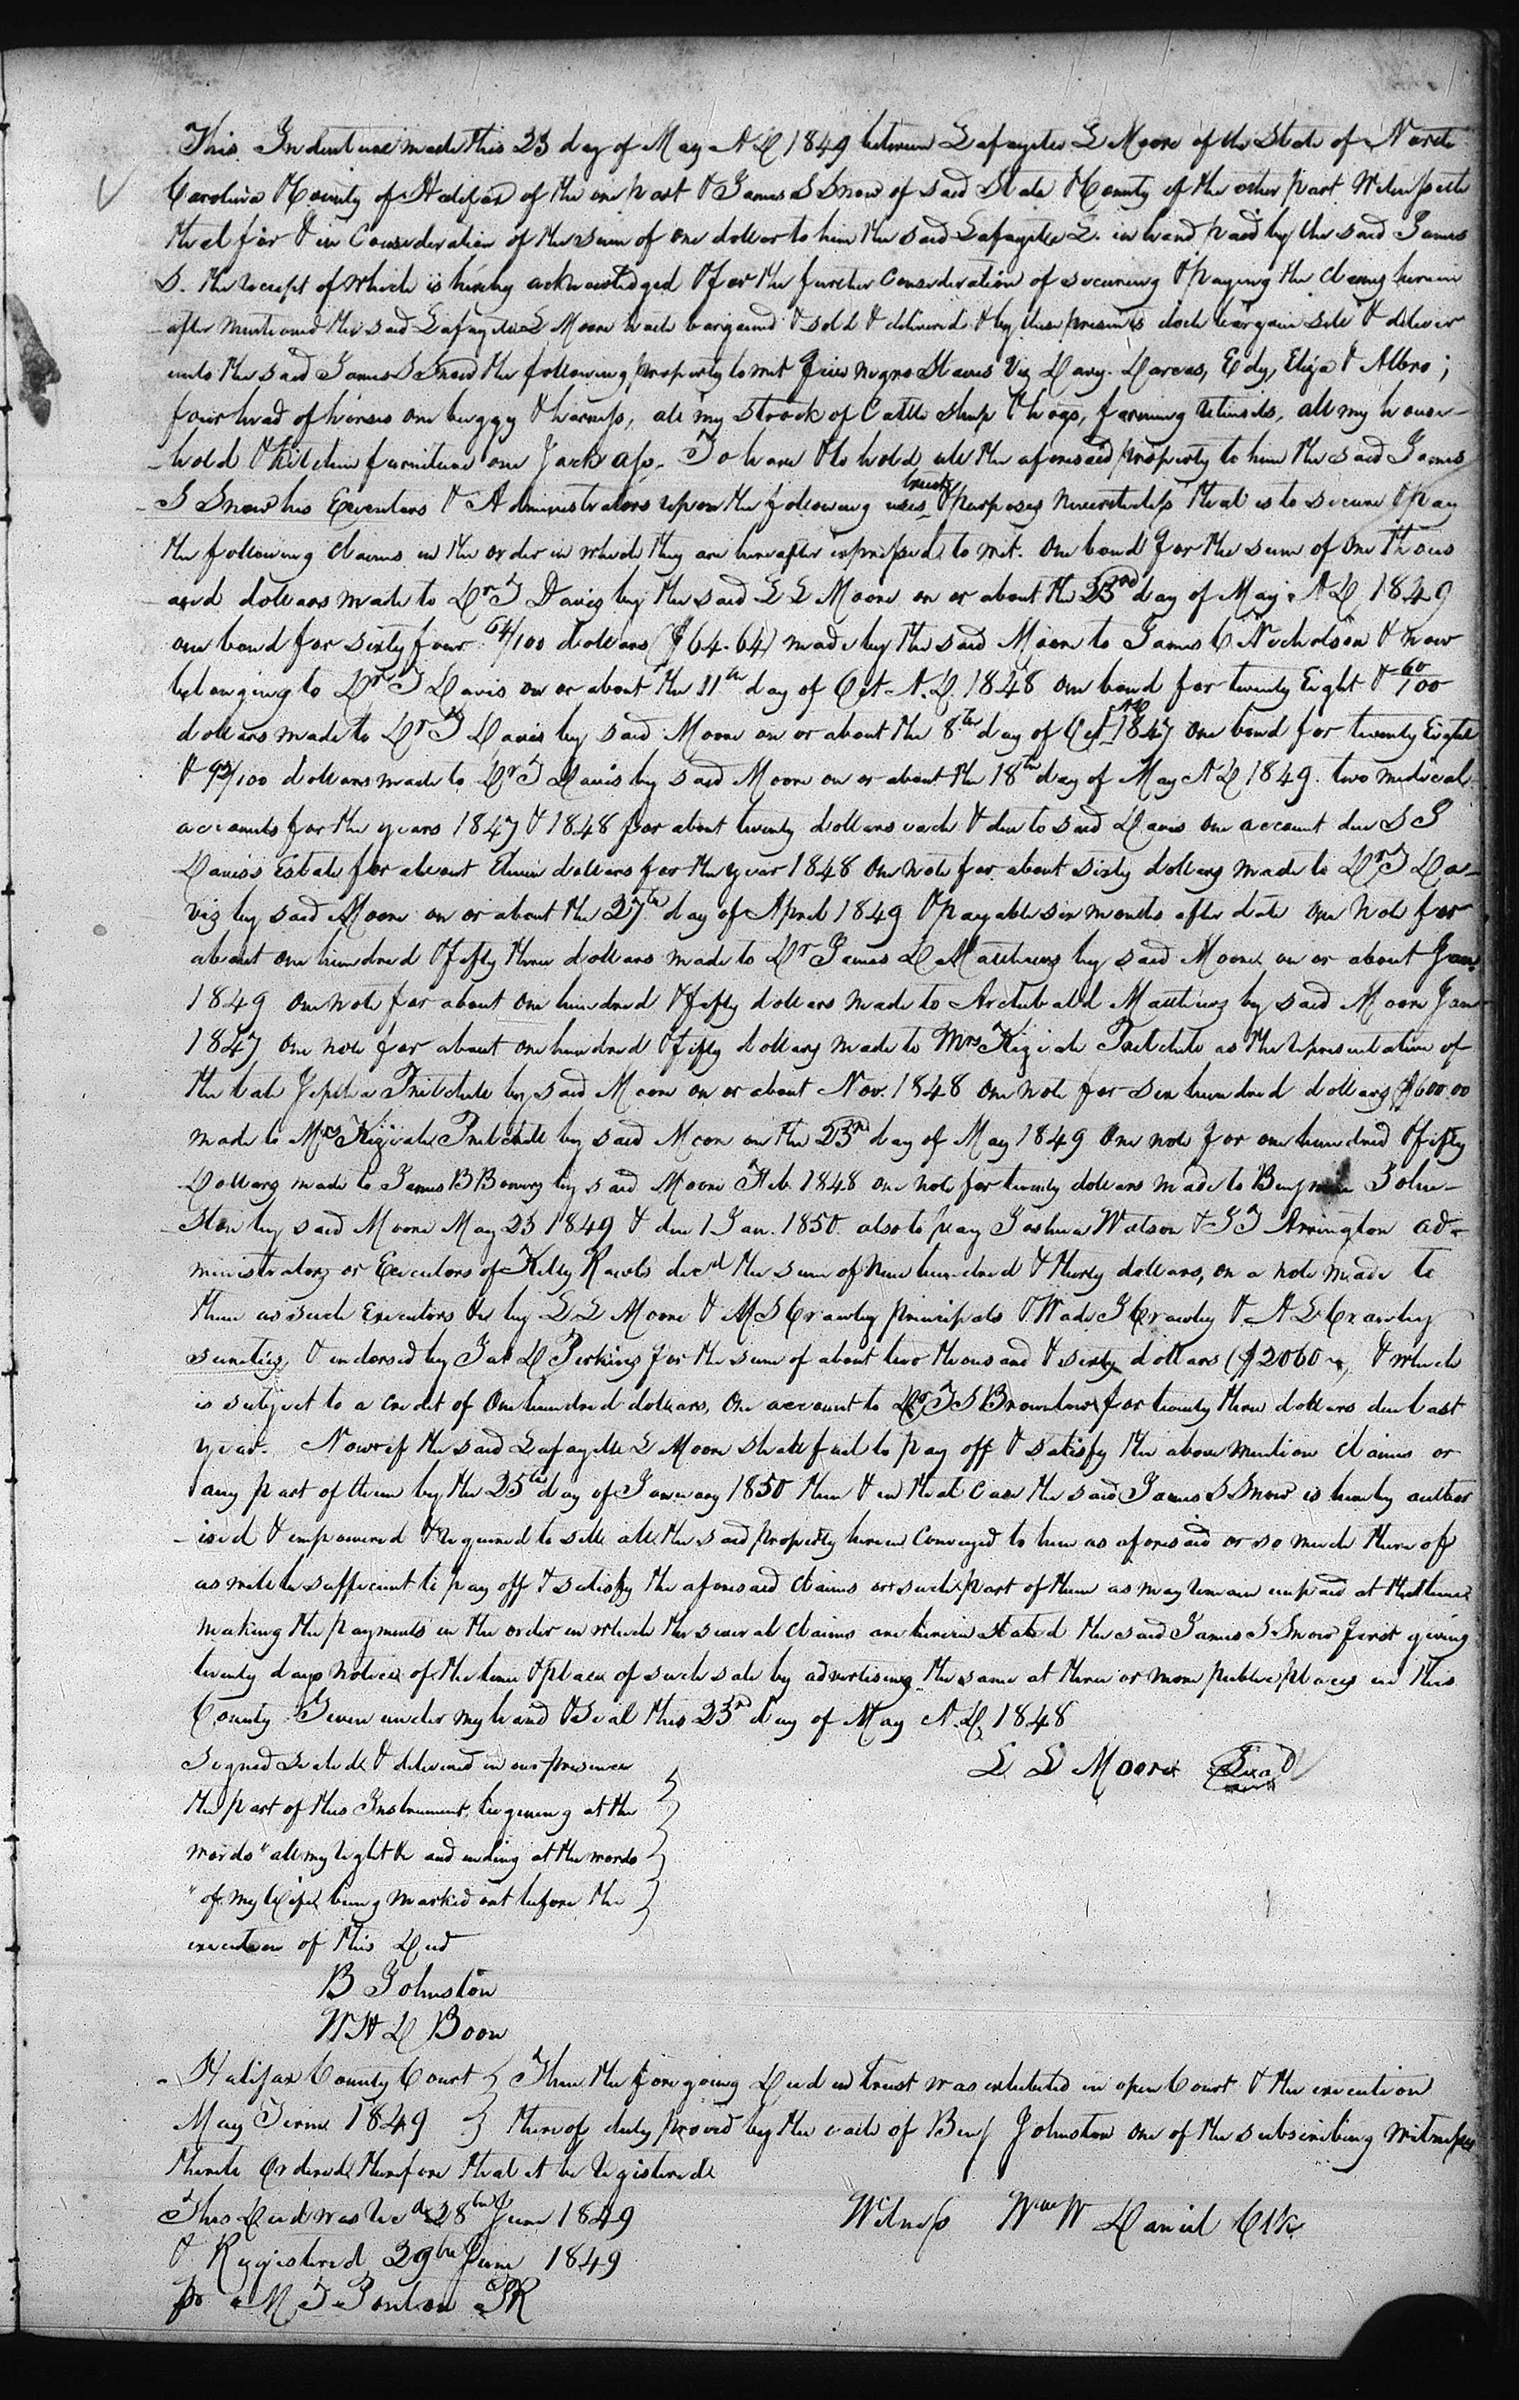 This Indenture made this 23 day of May A D 1849 between Lafayette L Moore of the State of North
Carolina & County of Halifax of the one part & James S Snow of said State & County of the other part Witnesseth
that for & in Consideration of the sum of one dollar to him the said Lafayette L. in hand paid by the said James
S. the receipt of which is hereby acknowledged & for the further Consideration of securing & paying the claims herein
after mentioned the said Lafayette L Moore hath bargained & sold & delivered & by these presents doth bargain sell & deliver
unto the said James S Snow the following property to wit five negro Slaves Viz Davy. Darcas, Edy, Eliza & Albro;
four head of horses one buggy & harness, all my Stock of Cattle sheep & hogs, farming utensils, all my house-
hold & Kitchen furniture one Jack ass. To have & to hold all the aforesaid property to him the said James
S Snow his Executors & Administrators upon the following uses trusts & purposes nevertheless that is to secure & pay
the following claims in the order in which they are hereafter expressed to wit. One bond for the sum of One thous
and dollars made to Dr T Davis by the said L L Moore on or about the 23rd day of May A D 1849
one bond for sixty four 64/100 dollars ($64.64) made by the said Moore to James C Nicholson & now
belonging to Dr T Davis on or about the 11th day of Oct A. D. 1848 one bond for twenty Eight & 60/100
dollars made to Dr T Davis by said Moore on or about the 8th day of Oct AD 1847 one bond for twenty Eight
& 93/100 dollars made to Dr T Davis by said Moore on or about the 18th day of May A D 1849. two medical
accounts for the years 1847 & 1848 for about twenty dollars each & due to said Davis one account due S S
Davis's Estate for about Eleven dollars for the year 1848 One note for about sixty dollars made to Dr T Da-
vis by said Moore on or about the 27th day of April 1849 & payable six months after date one Note for
about one hundred & fifty three dollars made to Dr James D Matthews by said Moore on or about Jan.
1849 One note for about one hundred & fifty dollars made to Archibald Matthews by said Moore Jan
1847 One note for about one hundred & fifty dollars made to Mrs Kiziah Pritchett as the representative of
the late Jeptha Pritchett by said Moore on or about Nov. 1848 One note for six hundred dollars $600.00
made to Mrs Kiziah Pritchett by said Moore on the 23rd day of May 1849 One note for one hundred & fifty
Dollars made to James B Bowers by said Moore Feb 1848 one note for twenty dollars made to Benjamin John-
ston by said Moore May 23 1849 & due 1 Jan. 1850. also to pay Joshua Watson & Arrington ad-
ministrators or Executors of Kelly Rawls decd the sum of Nine hundred & thirty dollars, on a note made to
them as such Executors &c by L L Moore & M S Crawley principals & Wade J Crawley & A L Crawley
sureties, & endorsed by Jas D Perkins for the sum of about two thousand & sixty dollars ($2060 & which
is subject to a credit of One hundred dollars, One account to Dr T S Brownlow for twenty three dollars due last
year. Now if the said Lafayette L Moore shall fail to pay off & satisfy the above mention claims or
any part of them by the 25th day of January 1850 then & in that case the said James S Snow is hereby author
ised & empowered & required to sell all the said property herein Conveyed to him as aforesaid or so much thereof
as will be sufficient to pay off & satisfy the aforesaid claims or such part of them as may remain unpaid at that time
making the payments in the order in which the several claims are herein stated the said James S Snow first giving
twenty days notice of the time & place of such sale by advertising the same at three or more public places in this
County Given under my hand & Seal this 23rd day of May A. D. 1848
Signed Sealed & delivered in our presence
L L Moore Seal
the part of this Instrument begining at the
words "all my right &c and ending at the words
"of my wife" being marked out before the
execution of this Deed
B Johnston
W H D Boon
Halifax County Court } Then the foregoing Deed in trust was exhibited in open Court & the execution
May Term 1849 } thereof duly proved by the oath of Benj Johnston one of the subscribing witnesses
thereto Ordered therefore that it be registered
This Deed was Recd 28th June 1849
Witness Wm W Daniel Clk
& Registered 29th June 1849
pr M T Ponton PR